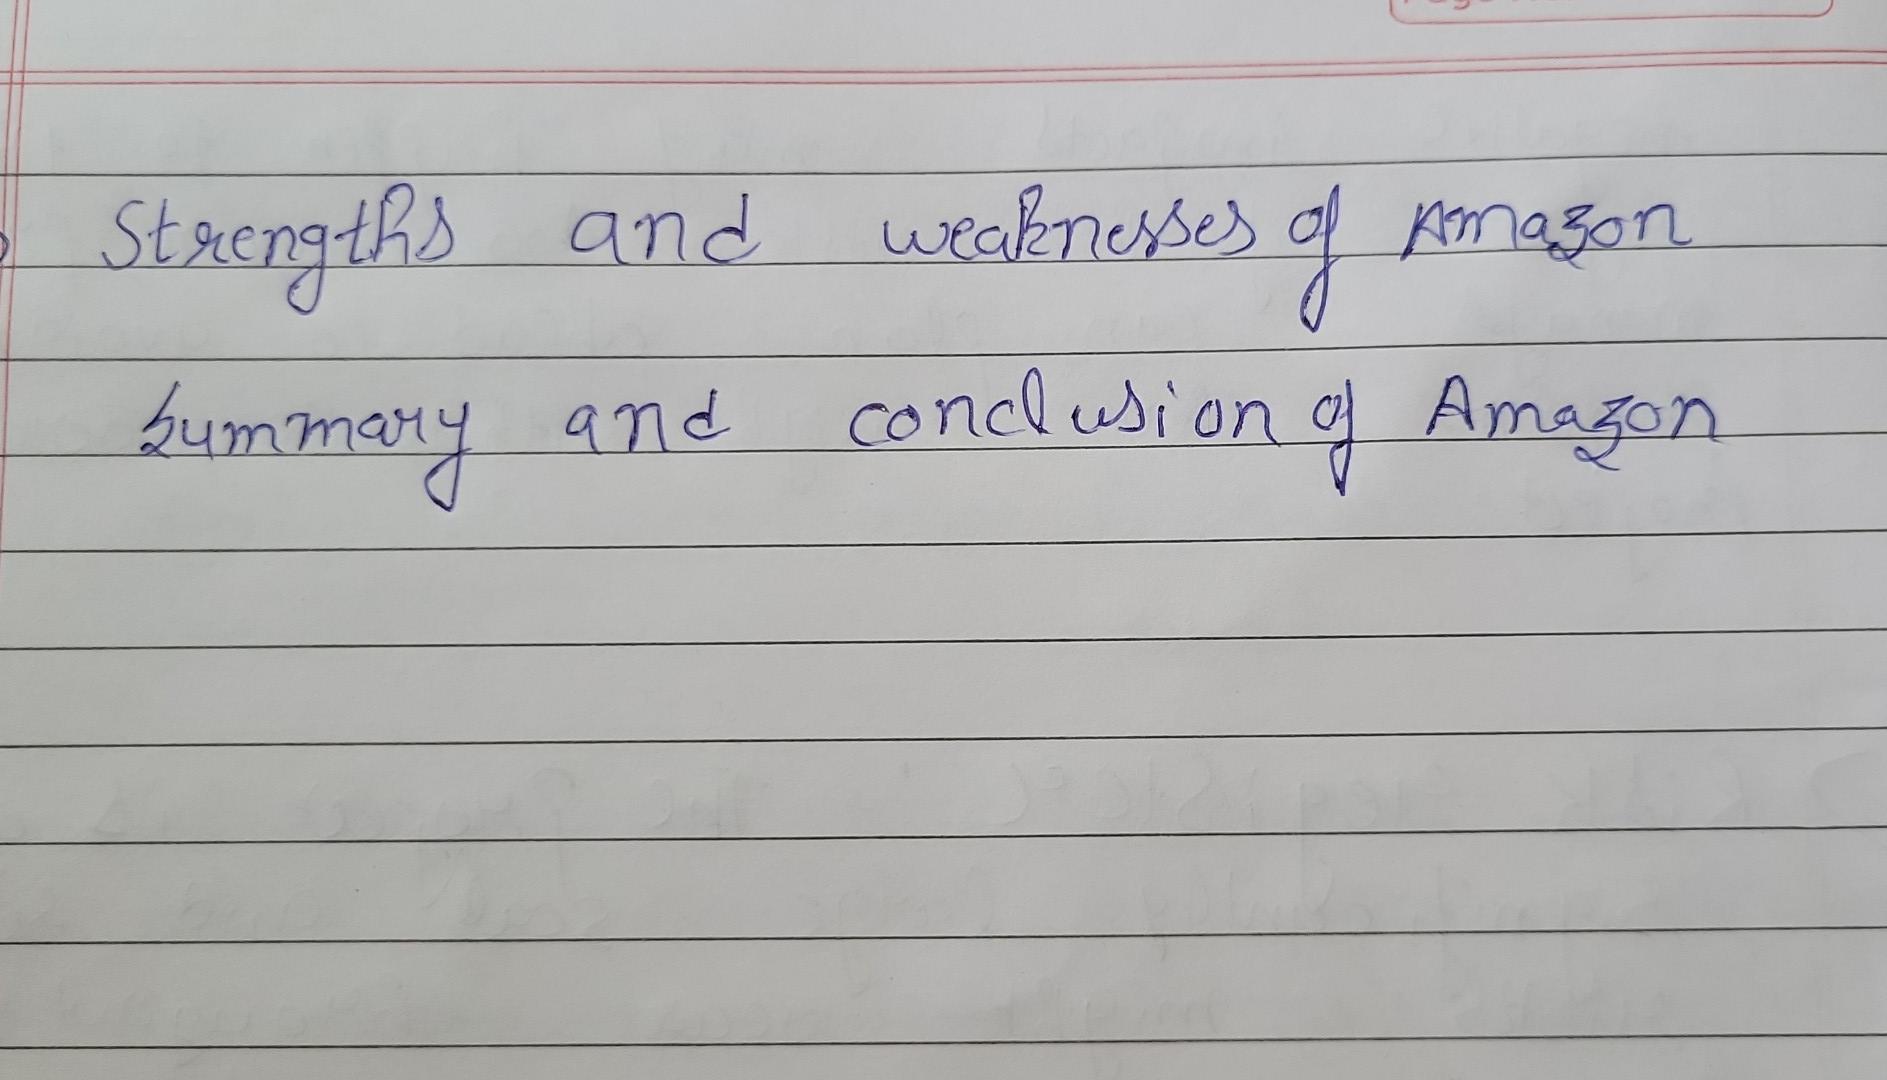 Strengths and weaknesses of Amazon
Summary and conclusion of Amazon